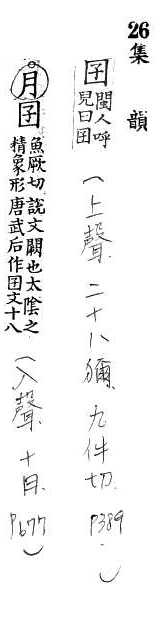 26集韻
囝閩人呼兒曰囝(上聲.二十八獮.九件切.P389.)
月囝魚厥切說文闕也太陰之精象形唐武后作囝文十八(入聲.十月.P677)